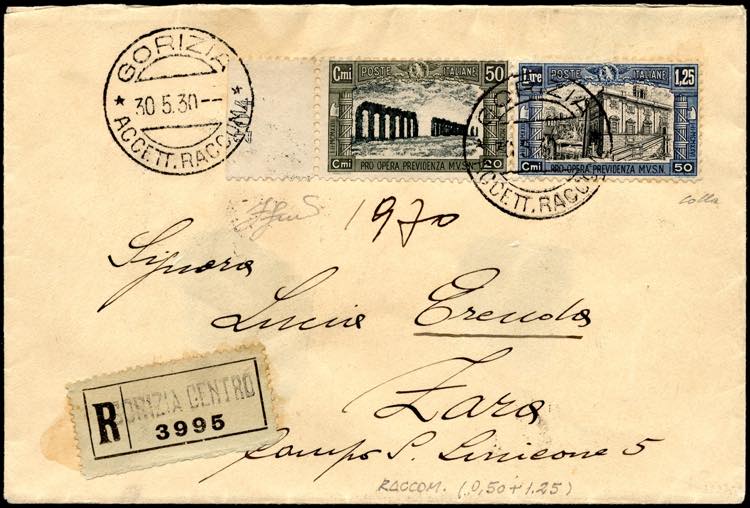 GORIZIA
30.5.30--
ACCETT. RACCOM
Cmi POSTE ITALIANE 50
Cmi PRO OPERA PREVIDENZA M.V.S.N. 20
Lire POSTE ITALIANE 1,25
Cmi PRO OPERA PREVIDENZA M.V.S.N. 50
GORIZIA
ACCETT. RACCOM
colla
1970
Signora
Lucia
Zara
Campo S.
5
R GORIZIA CENTRO
3995
RACCOM. (0,50+1.25)